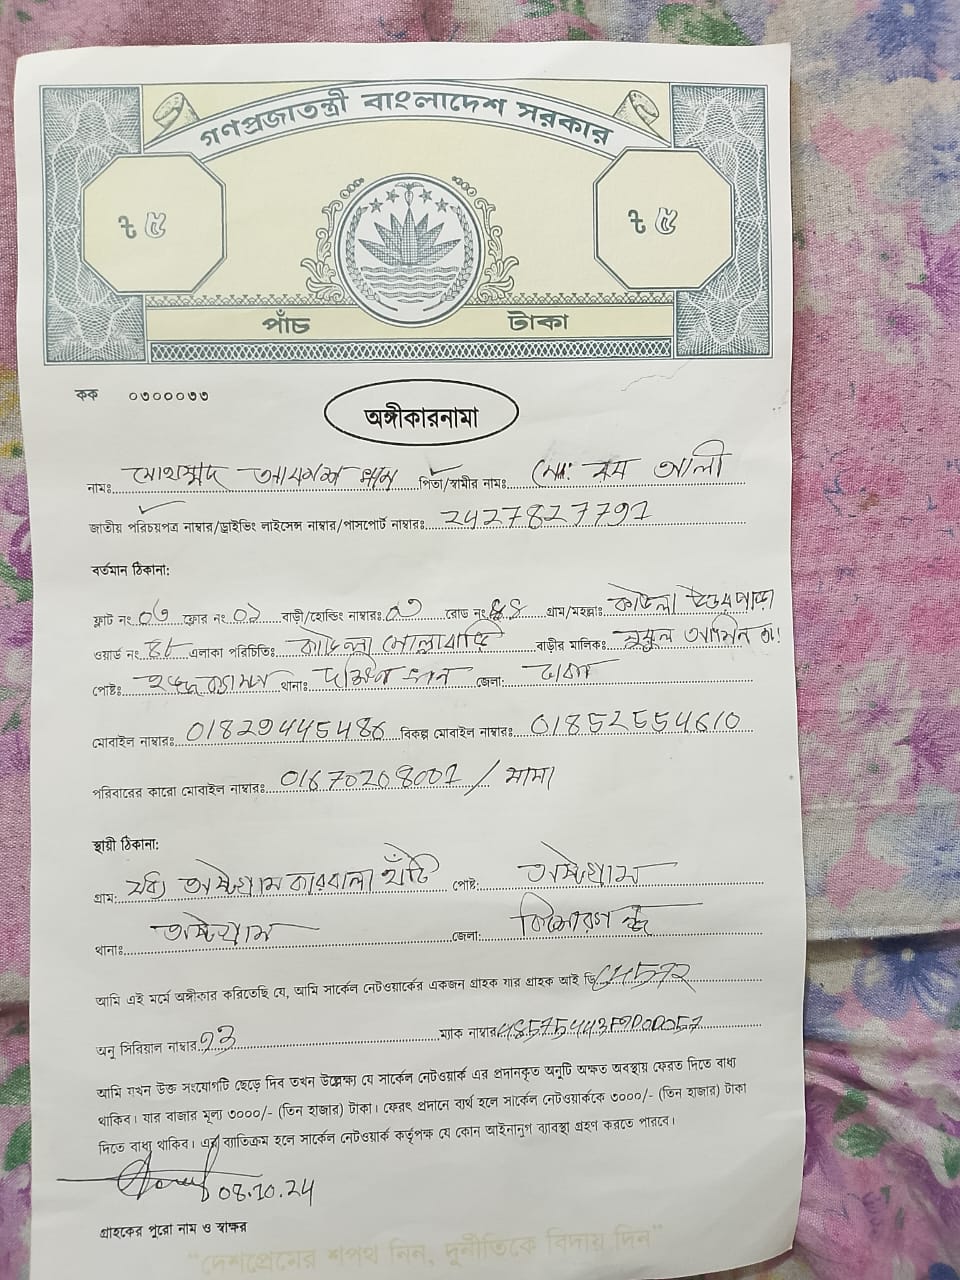 গণপ্রজাতন্ত্রী বাংলাদেশ সরকার
৳ ৫ ৳ ৫
পাঁচ টাকা
কক ০৩০০০৩৩
অঙ্গীকারনামা
নামঃ মোহাম্মদ পিতা/স্বামীর নামঃ আলী
জাতীয় পরিচয়পত্র নাম্বার/ড্রাইভিং লাইসেন্স নাম্বার/পাসপোর্ট নাম্বারঃ 2427827791
বর্তমান ঠিকানা:
ফ্লাট নং ফ্লোর নং বাড়ী/হোল্ডিং নাম্বারঃ রোড নং গ্রাম/মহল্লাঃ কাওলা উত্তরপাড়া
ওয়ার্ড নং এলাকা পরিচিতিঃ কাওলা মোল্লাবাড়ি বাড়ীর মালিকঃ
পোষ্টঃ থানাঃ দক্ষিণ খান জেলা: ঢাকা
মোবাইল নাম্বারঃ 01829445486 বিকল্প মোবাইল নাম্বারঃ 01852554610
পরিবারের কারো মোবাইল নাম্বারঃ / মামা
স্থায়ী ঠিকানা:
গ্রাম: মধ্য অষ্টগ্রাম কারবালা হাঁটি পোষ্ট: অষ্টগ্রাম
থানাঃ অষ্টগ্রাম জেলা: কিশোরগঞ্জ
আমি এই মর্মে অঙ্গীকার করিতেছি যে, আমি সার্কেল নেটওয়ার্কের একজন গ্রাহক যার গ্রাহক আই ডি
অনু সিরিয়াল নাম্বার 23 ম্যাক নাম্বার
আমি যখন উক্ত সংযোগটি ছেড়ে দিব তখন উল্লেক্ষ্য যে সার্কেল নেটওয়ার্ক এর প্রদানকৃত অনুটি অক্ষত অবস্থায় ফেরত দিতে বাধ্য
থাকিব। যার বাজার মূল্য ৩০০০/- (তিন হাজার) টাকা। ফেরৎ প্রদানে ব্যর্থ হলে সার্কেল নেটওয়ার্ককে ৩০০০/- (তিন হাজার) টাকা
দিতে বাধ্য থাকিব। এর ব্যাতিক্রম হলে সার্কেল নেটওয়ার্ক কর্তৃপক্ষ যে কোন আইনানুগ ব্যাবস্থা গ্রহণ করতে পারবে।
08.10.24
গ্রাহকের পুরো নাম ও স্বাক্ষর
"দেশপ্রেমের শপথ নিন, দুর্নীতিকে বিদায় দিন"